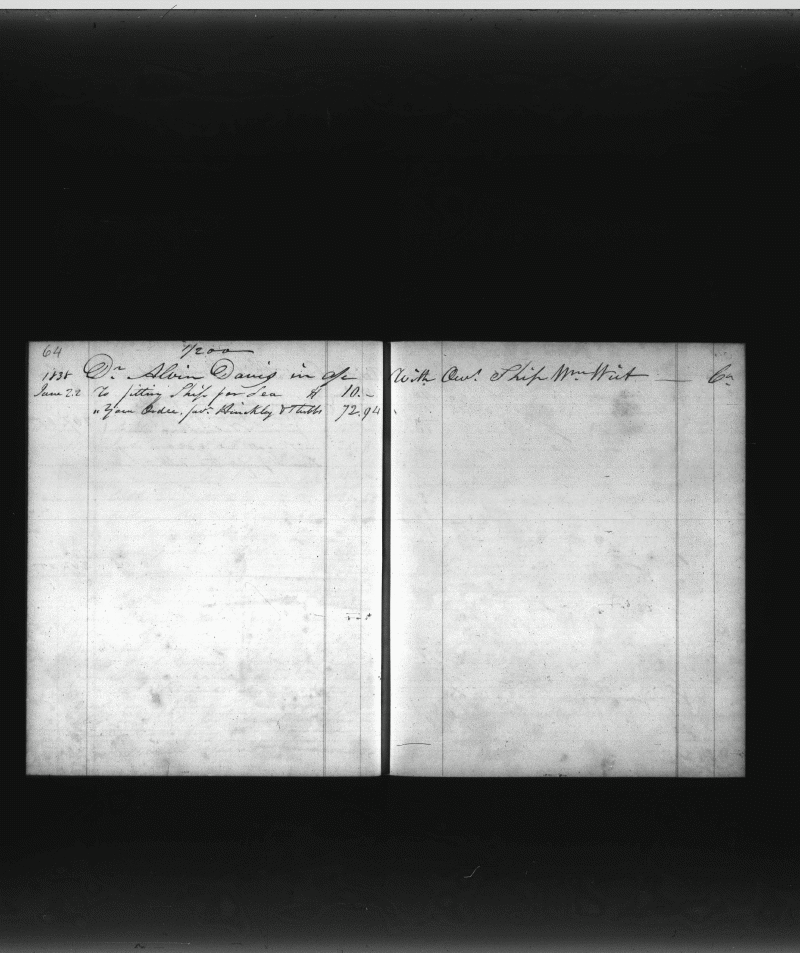 64 1/200
1838 Dr Alvin Davis in a/c With Own. Ship Wm Wirt — Cr
June 22 To fitting Ship for Sea 10.–
" Your Order fav. Hinckley & Tubbs 72.94